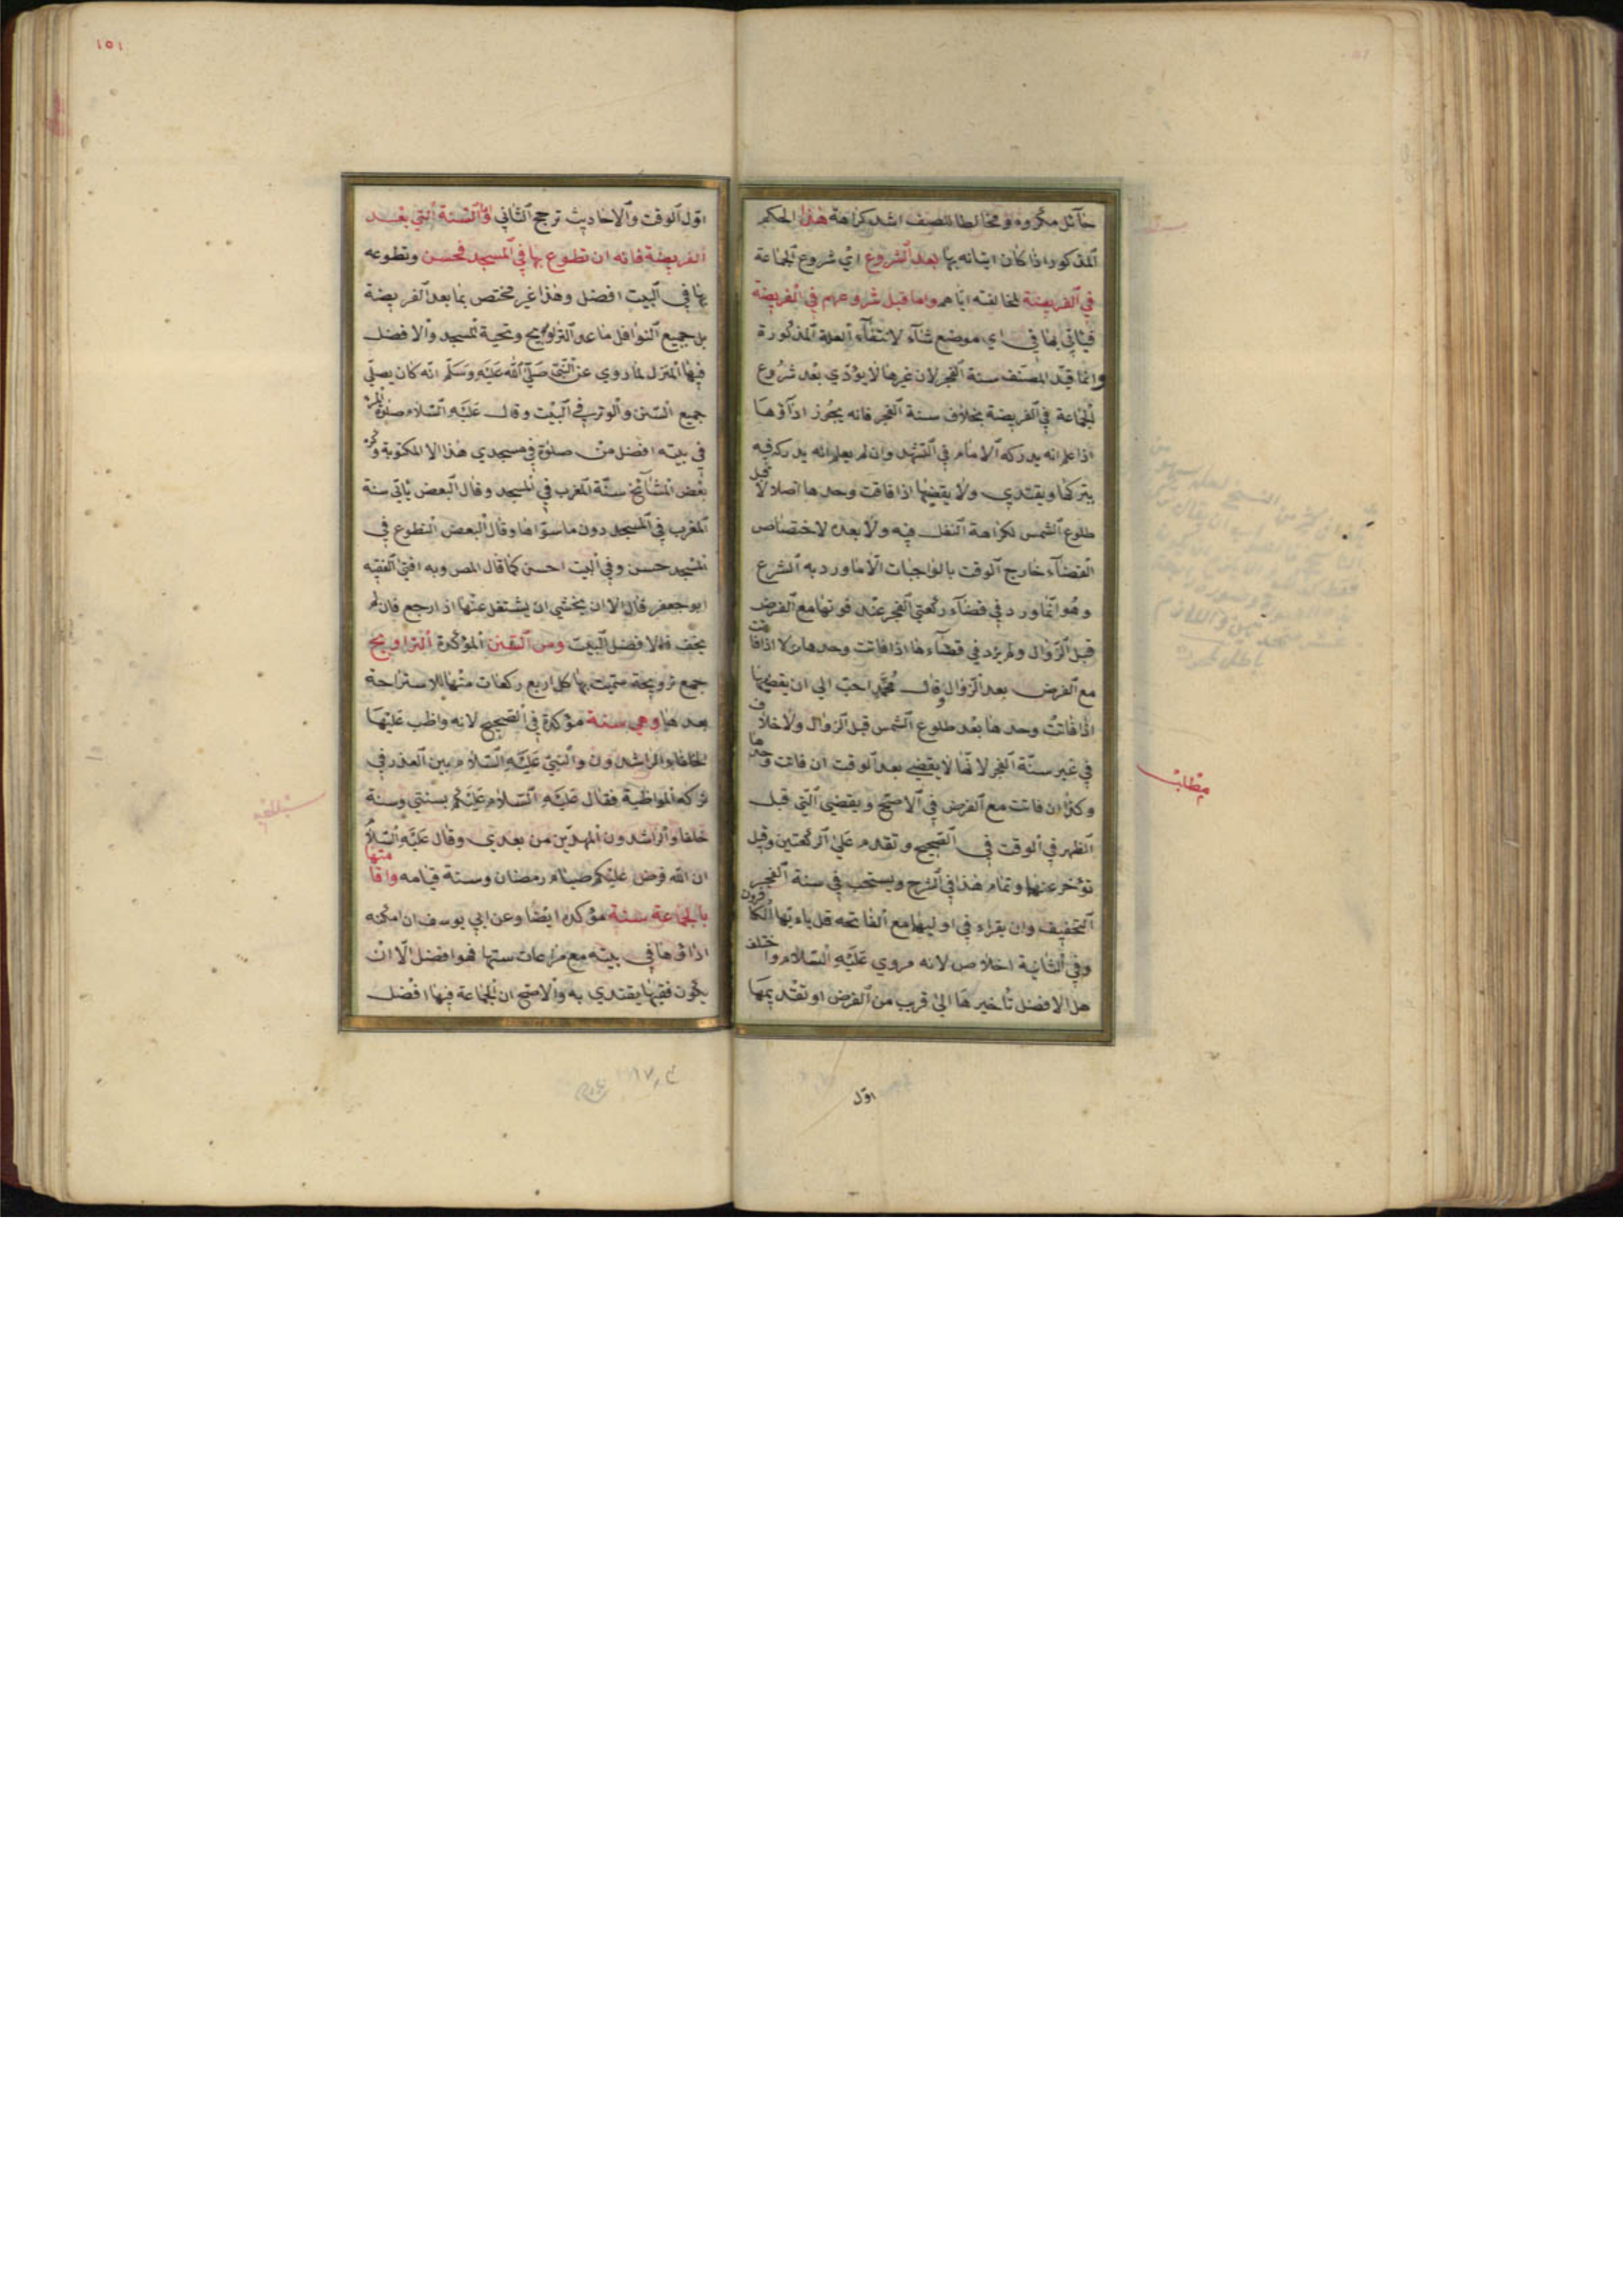 حآئل مكروه ومخالطا للصف اشد كراهة هذا الحكم
المذكور اذا كان اتيانه بها بعد الشروع اي شروع الجماعة
في الفريضة لمخالفته اياهم واما قبل شروعهم في الفريضة
فيأتي بها في اي موضع شآء لانتفآء العلة المذكورة
وانما قيد المصنف سنة الفجر لان غيرها لا يؤدي بعد شروع
الجماعة في الفريضة بخلاف سنة الفجر فانه يجوز ادآؤها
اذا علم انه يدركه الامام في التشهد وان لم يعلم انه يدركه فيه
يتركها ويقتدي ولا يقضيها اذا فاتت وحدها اصلا لا قبل
طلوع الشمس لكراهة النفل فيه ولا بعده لاختصاص
القضآء خارج الوقت بالواجبات الا ما ورد به الشرع
وهو انما ورد في قضآء ركعتي الفجر عند فوتها مع الفرض
قبل الزوال ولم يرد في قضآءها اذا فاتت وحدها ولا اذا فاتت
مع الفرض بعد الزوال وقال محمد احب الي ان يقضيها
اذا فاتت وحدها بعد طلوع الشمس قبل الزوال ولا خلاف
في غير سنة الفجر لانها لا يقضي بعد الوقت ان فاتت وحدها
وكذا ان فاتت مع الفرض في الاصح ويقضي التي قبل
الظهر في الوقت في الصحيح وتقدم علي الركعتين وقيل
تؤخر عنهما وتمام هذا في الشرح ويستحب في سنة الفجر
التخفيف وان يقراء في اوليهما مع الفاتحه قل يا ءيها الكافرون
وفي الثانية اخلاص لانه مروي عليه السلام واختلف
هل الافضل تأخيرها الي قرب من الفرض او تقديمها
مطلب
اول
١٥١
اول الوقت والاحاديث ترجح الثاني واما السنة التي بعد
الفريضة فانه ان تطوع بها في المسجد فحسن وتطوعه
بها في البيت افضل وهذا غير مختص بما بعد الفريضة
بل جميع النوافل ما عدا التراويح وتحية المسجد والافضل
فيها المنزل لما روي عن النبي صلي الله عليه وسلم انه كان يصلي
جميع السنن والوتر في البيت وقال عليه السلام صلوة المرء
في بيته افضل من صلوة في مسجدي هذا الا المكتوبة وكره
بعض المشآئخ سنة المغرب في المسجد وقال البعض يأتي سنة
المغرب في المسجد دون ما سواها وقال البعض التطوع في
المسجد حسن وفي البيت احسن كما قال المص وبه افتي الفقيه
ابو جعفر قال الا ان يخشي ان يشتغل عنها اذا رجع فان لم
يخف فالافضل البيت ومن السنن المؤكدة التراويح
جمع ترويحة سميت بها كل اربع ركعات منها للاستراحة
بعدها وهي سنة مؤكدة في الصحيح لانه واظب عليها
الخلفاء الراشدون والنبي عليه السلام بين العذر في
تركه المواظبة فقال عليه السلام عليكم بسنتي وسنة
خلفاء الراشدون المهدين من بعدي وقال عليه السلام
ان الله فرض عليكم صيام رمضان وسنة قيامه واقامتها
بالجماعة سنة مؤكده ايضا وعن ابي يوسف ان امكنه
اداؤها في بيته مع مراعات سنتها فهو افضل الا ان
يكون فقيها يقتدي به والاصح ان الجماعة فيها افضل